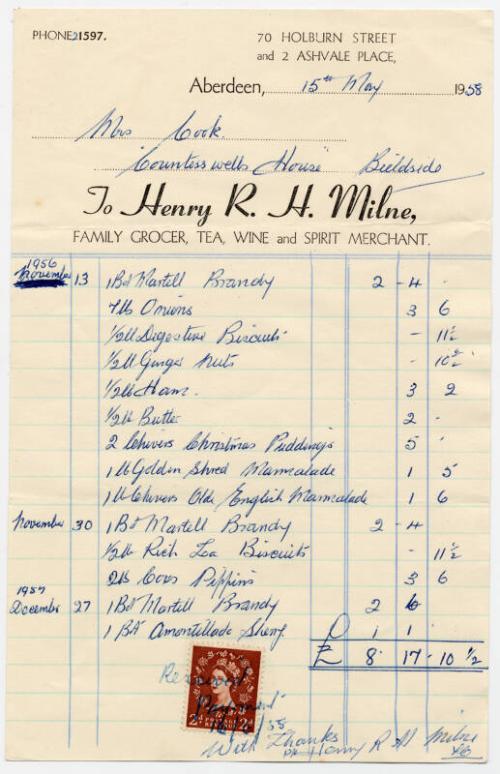 PHONE 21597.
70 HOLBURN STREET
and 2 ASHVALE PLACE,
Aberdeen, 15th May 1958
Mrs Cook.
"Countesswells House" Bieldside
To Henry R. H. Milne,
FAMILY GROCER, TEA, WINE and SPIRIT MERCHANT.
1956
November 13 1 Bot Martell Brandy 2 - 4 -
4 lb Onions 3 6
1/2 lb Digestive Biscuits - 11 1/2
1/2 lb Ginger Nuts - 10 1/2
1/2 lb Ham. 3 2
1/2 lb Butter 2 -
2 Chivers Christmas Puddings 5 -
1 lb Golden Shred Marmalade 1 5
1 lb Chivers Olde English Marmalade 1 6
November 30 1 Bot Martell Brandy 2 - 4
1/2 lb Rich Tea Biscuits - 11 1/2
2 lb Coxs Pippins 3 6
1957
December 27 1 Bot Martell Brandy 2 6
1 Bot Amontillado Sherry 1 1
£ 8 - 17 - 10 1/2
Received
Payment
58
With Thanks
Henry R H Milne